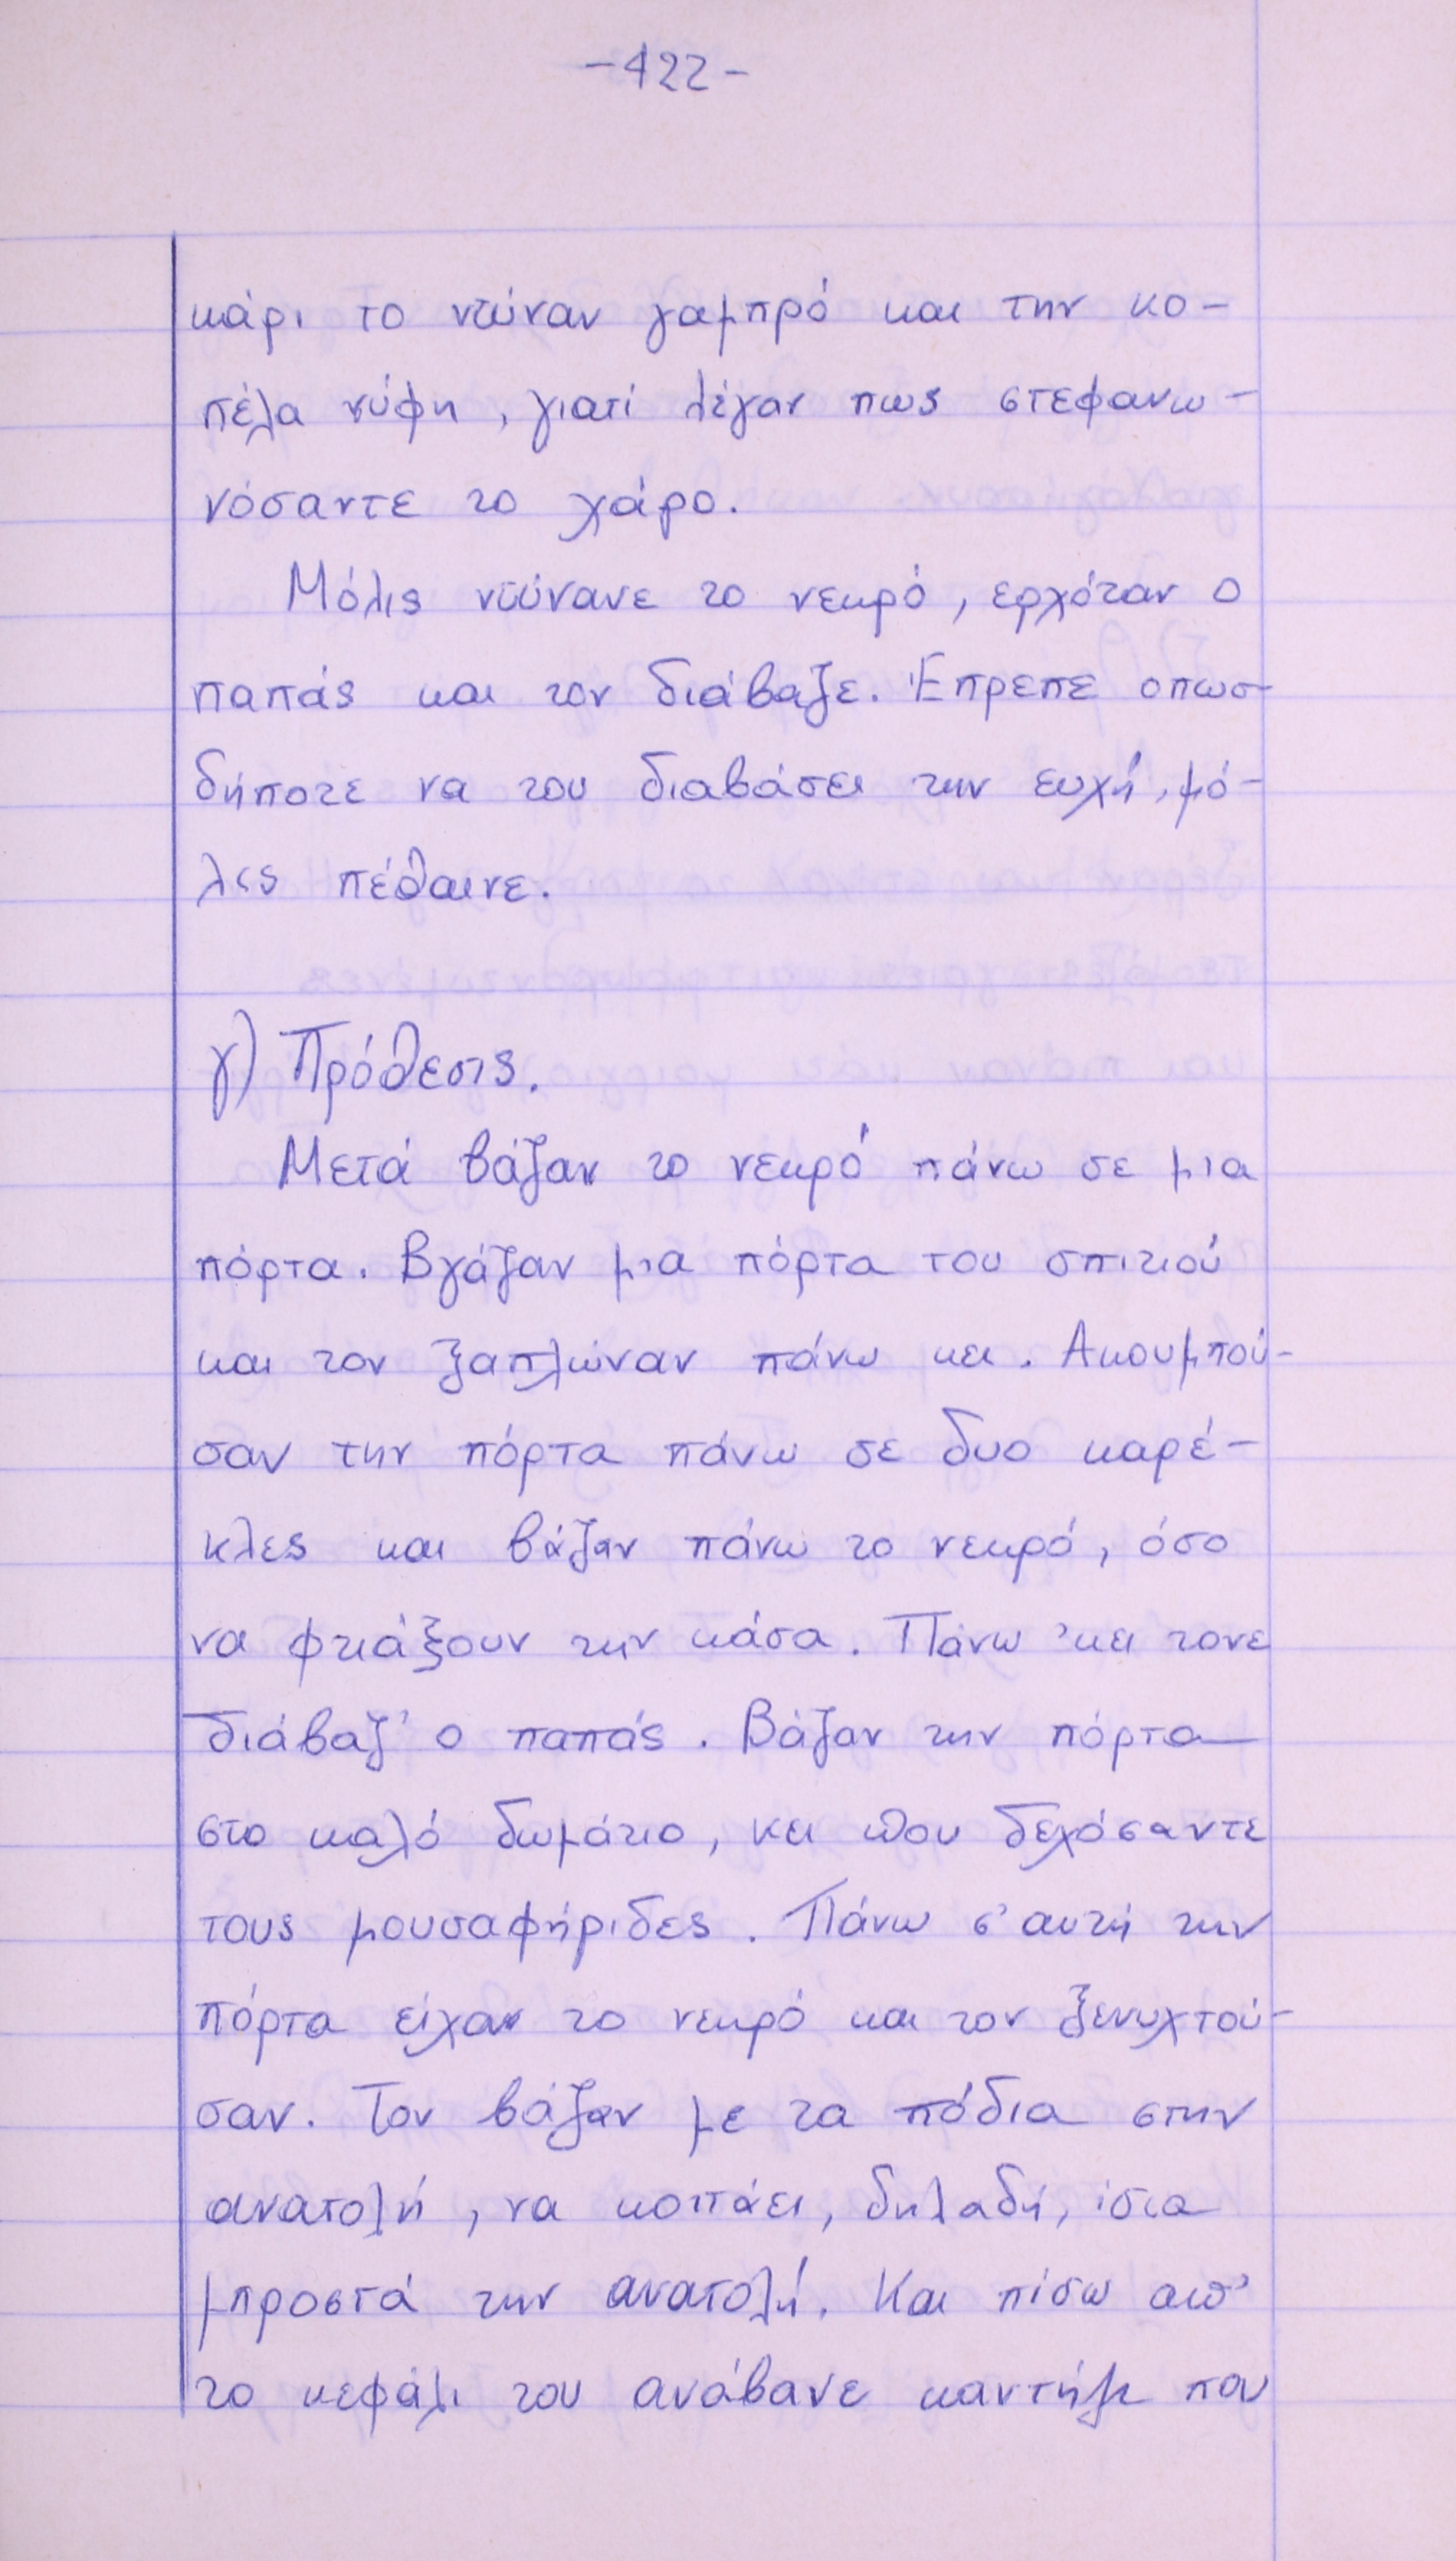 -422-
κάρι το ντύναν γαμπρό και την κο-
πέλα νύφη, γιατί λέγαν πως στεφανω-
νόσαντε το χάρο.
Μόλις ντύνανε το νεκρό, ερχόταν ο
παπάς και τον διάβαζε. Έπρεπε οπωσ-
δήποτε να του διαβάσει την ευχή, μό-
λις πέθαινε.
γ) Πρόθεσις.
Μετά βάζαν το νεκρό πάνω σε μια
πόρτα. Βγάζαν μια πόρτα του σπιτιού
και τον ξαπλώναν πάνω κει. Ακουμπού-
σαν την πόρτα πάνω σε δυο καρέ-
κλες και βάζαν πάνω το νεκρό, όσο
να φτιάξουν την κάσα. Πάνω 'κει τονε
διάβαζ' ο παπάς. Βάζαν την πόρτα
στο καλό δωμάτιο, κει που δεχόσαντε
τους μουσαφήριδες. Πάνω σ' αυτή την
πόρτα είχαν το νεκρό και τον ξενυχτού-
σαν. Τον βάζαν με τα πόδια στην
ανατολή, να κοιτάει, δηλαδή, ίσια
μπροστά την ανατολή. Και πίσω απ'
το κεφάλι του ανάβανε καντήλι που